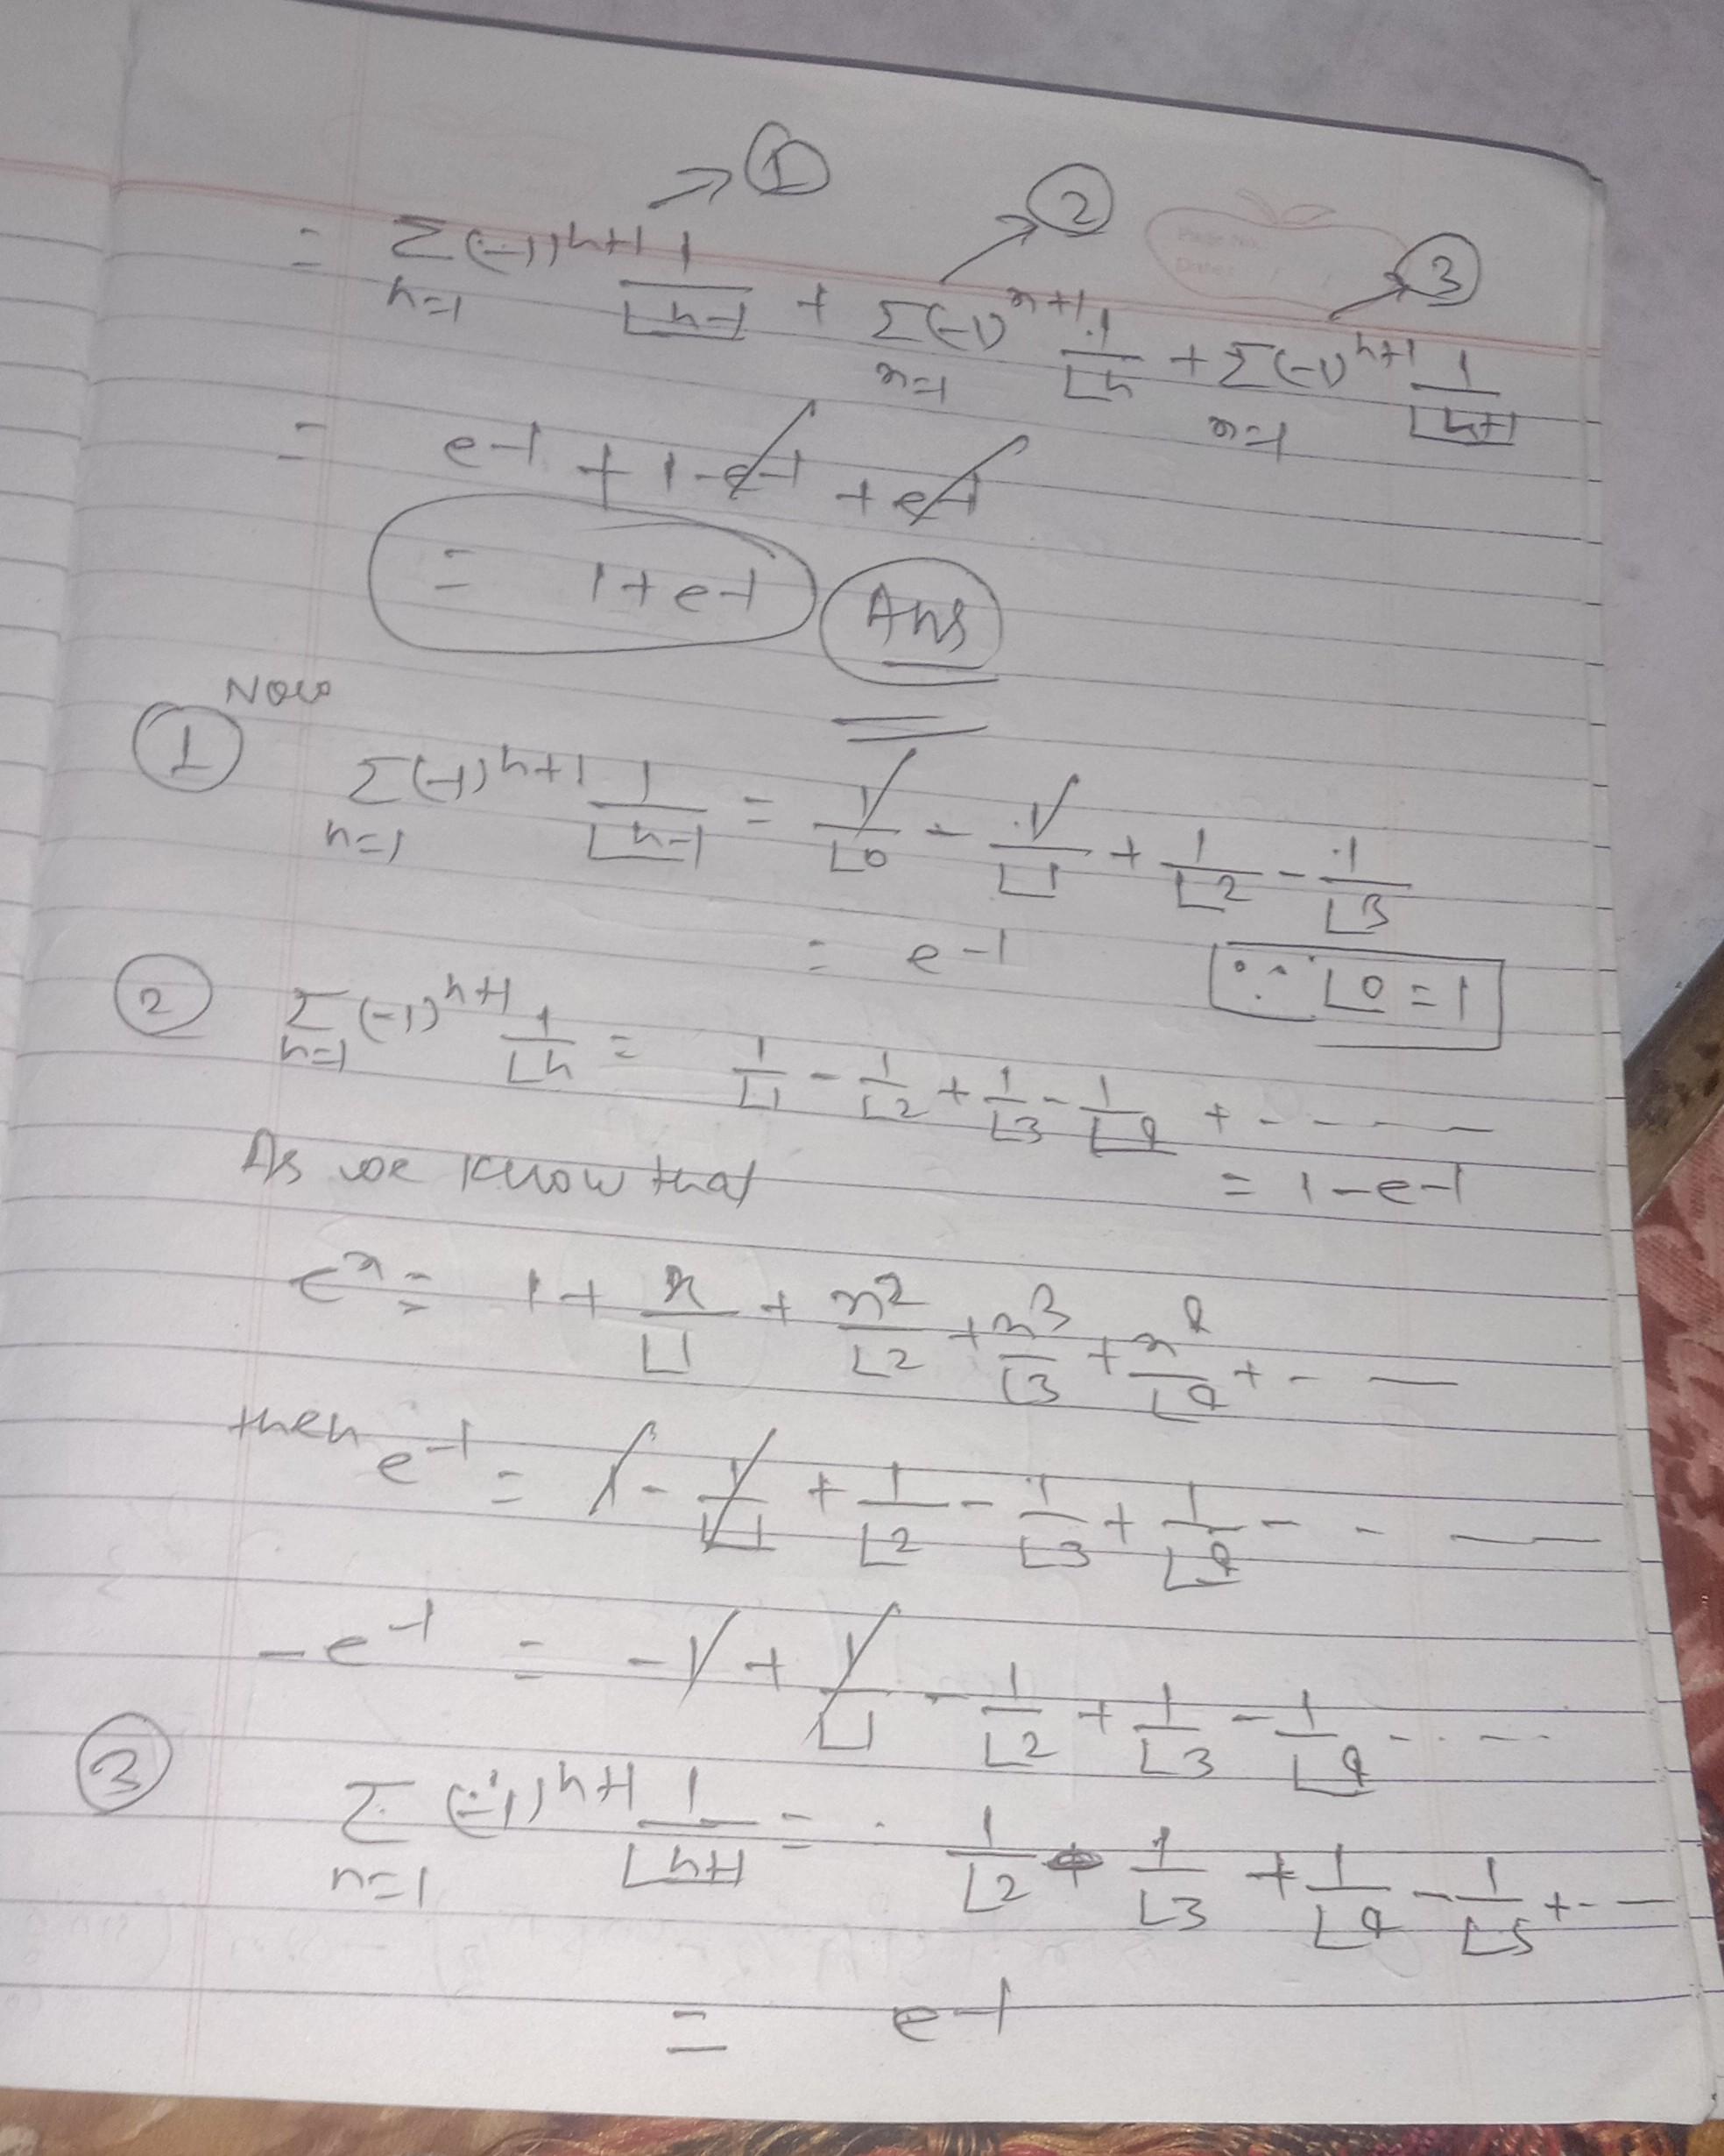 ① ② ③
= Σ(-1)^{n+1} 1/∟n-1 + Σ(-1)^{n+1} 1/∟n + Σ(-1)^{n+1} 1/∟n+1
n=1 n=1 n=1
= e^-1 + 1 - e^-1 + e^-1
= 1 + e^-1 Ans
Now
① Σ(-1)^{n+1} 1/∟n-1 = 1/∟0 - 1/∟1 + 1/∟2 - 1/∟3
n=1
= e^-1 ∵ ∟0 = 1
② Σ(-1)^{n+1} 1/∟n = 1/∟1 - 1/∟2 + 1/∟3 - 1/∟4 + - - - -
n=1
As we know that = 1 - e^-1
e^x = 1 + x/∟1 + x^2/∟2 + x^3/∟3 + x^4/∟4 + - -
then e^-1 = 1 - 1/∟1 + 1/∟2 - 1/∟3 + 1/∟4 - - -
-e^-1 = -1 + 1/∟1 - 1/∟2 + 1/∟3 - 1/∟4 - - -
③ Σ(-1)^{n+1} 1/∟n+1 = 1/∟2 - 1/∟3 + 1/∟4 - 1/∟5 + - -
n=1
= e^-1